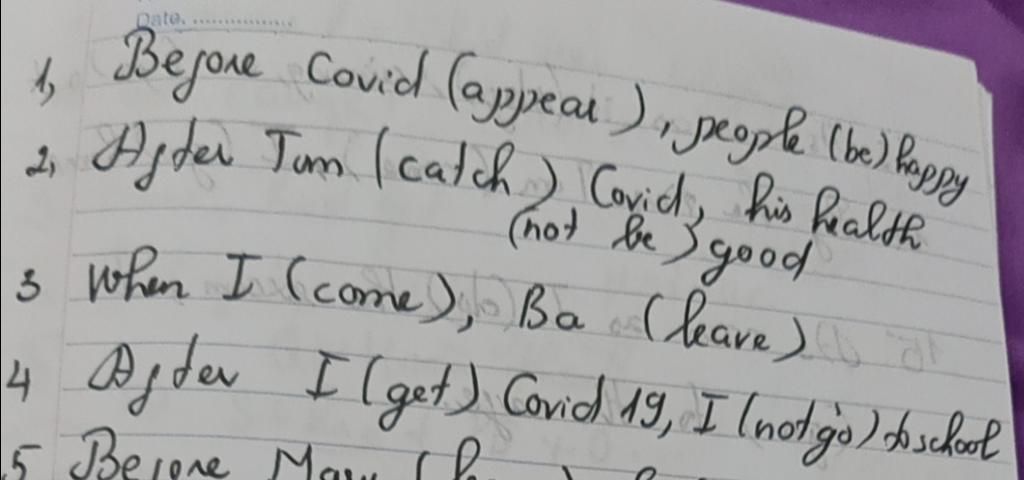 Date. ...............
1, Before Covid (appear), people (be) happy
2, After Tam (catch) Covid, his health
(not be) good
3 When I (come), Ba (leave)
4 After I (get) Covid 19, I (not go) to school
5 Before Mary (